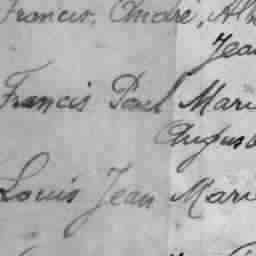 Francis, André, Alb
Jean
Francis Paul Mari
Augus
Louis Jean Mari